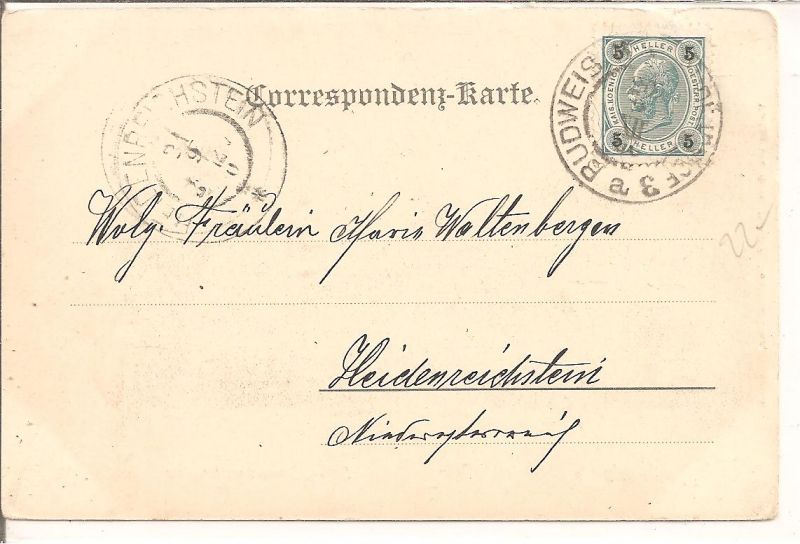 Correspondenz-Karte.
5 HELLER 5
KAIS. KOENIGL. OESTERR. POST.
5 HELLER 5
BUDWEIS
3 a
HEIDENREICHSTEIN
Wolg. Fräulein Marie Waltenberger
Heidenreichstein
Niederösterreich
22-